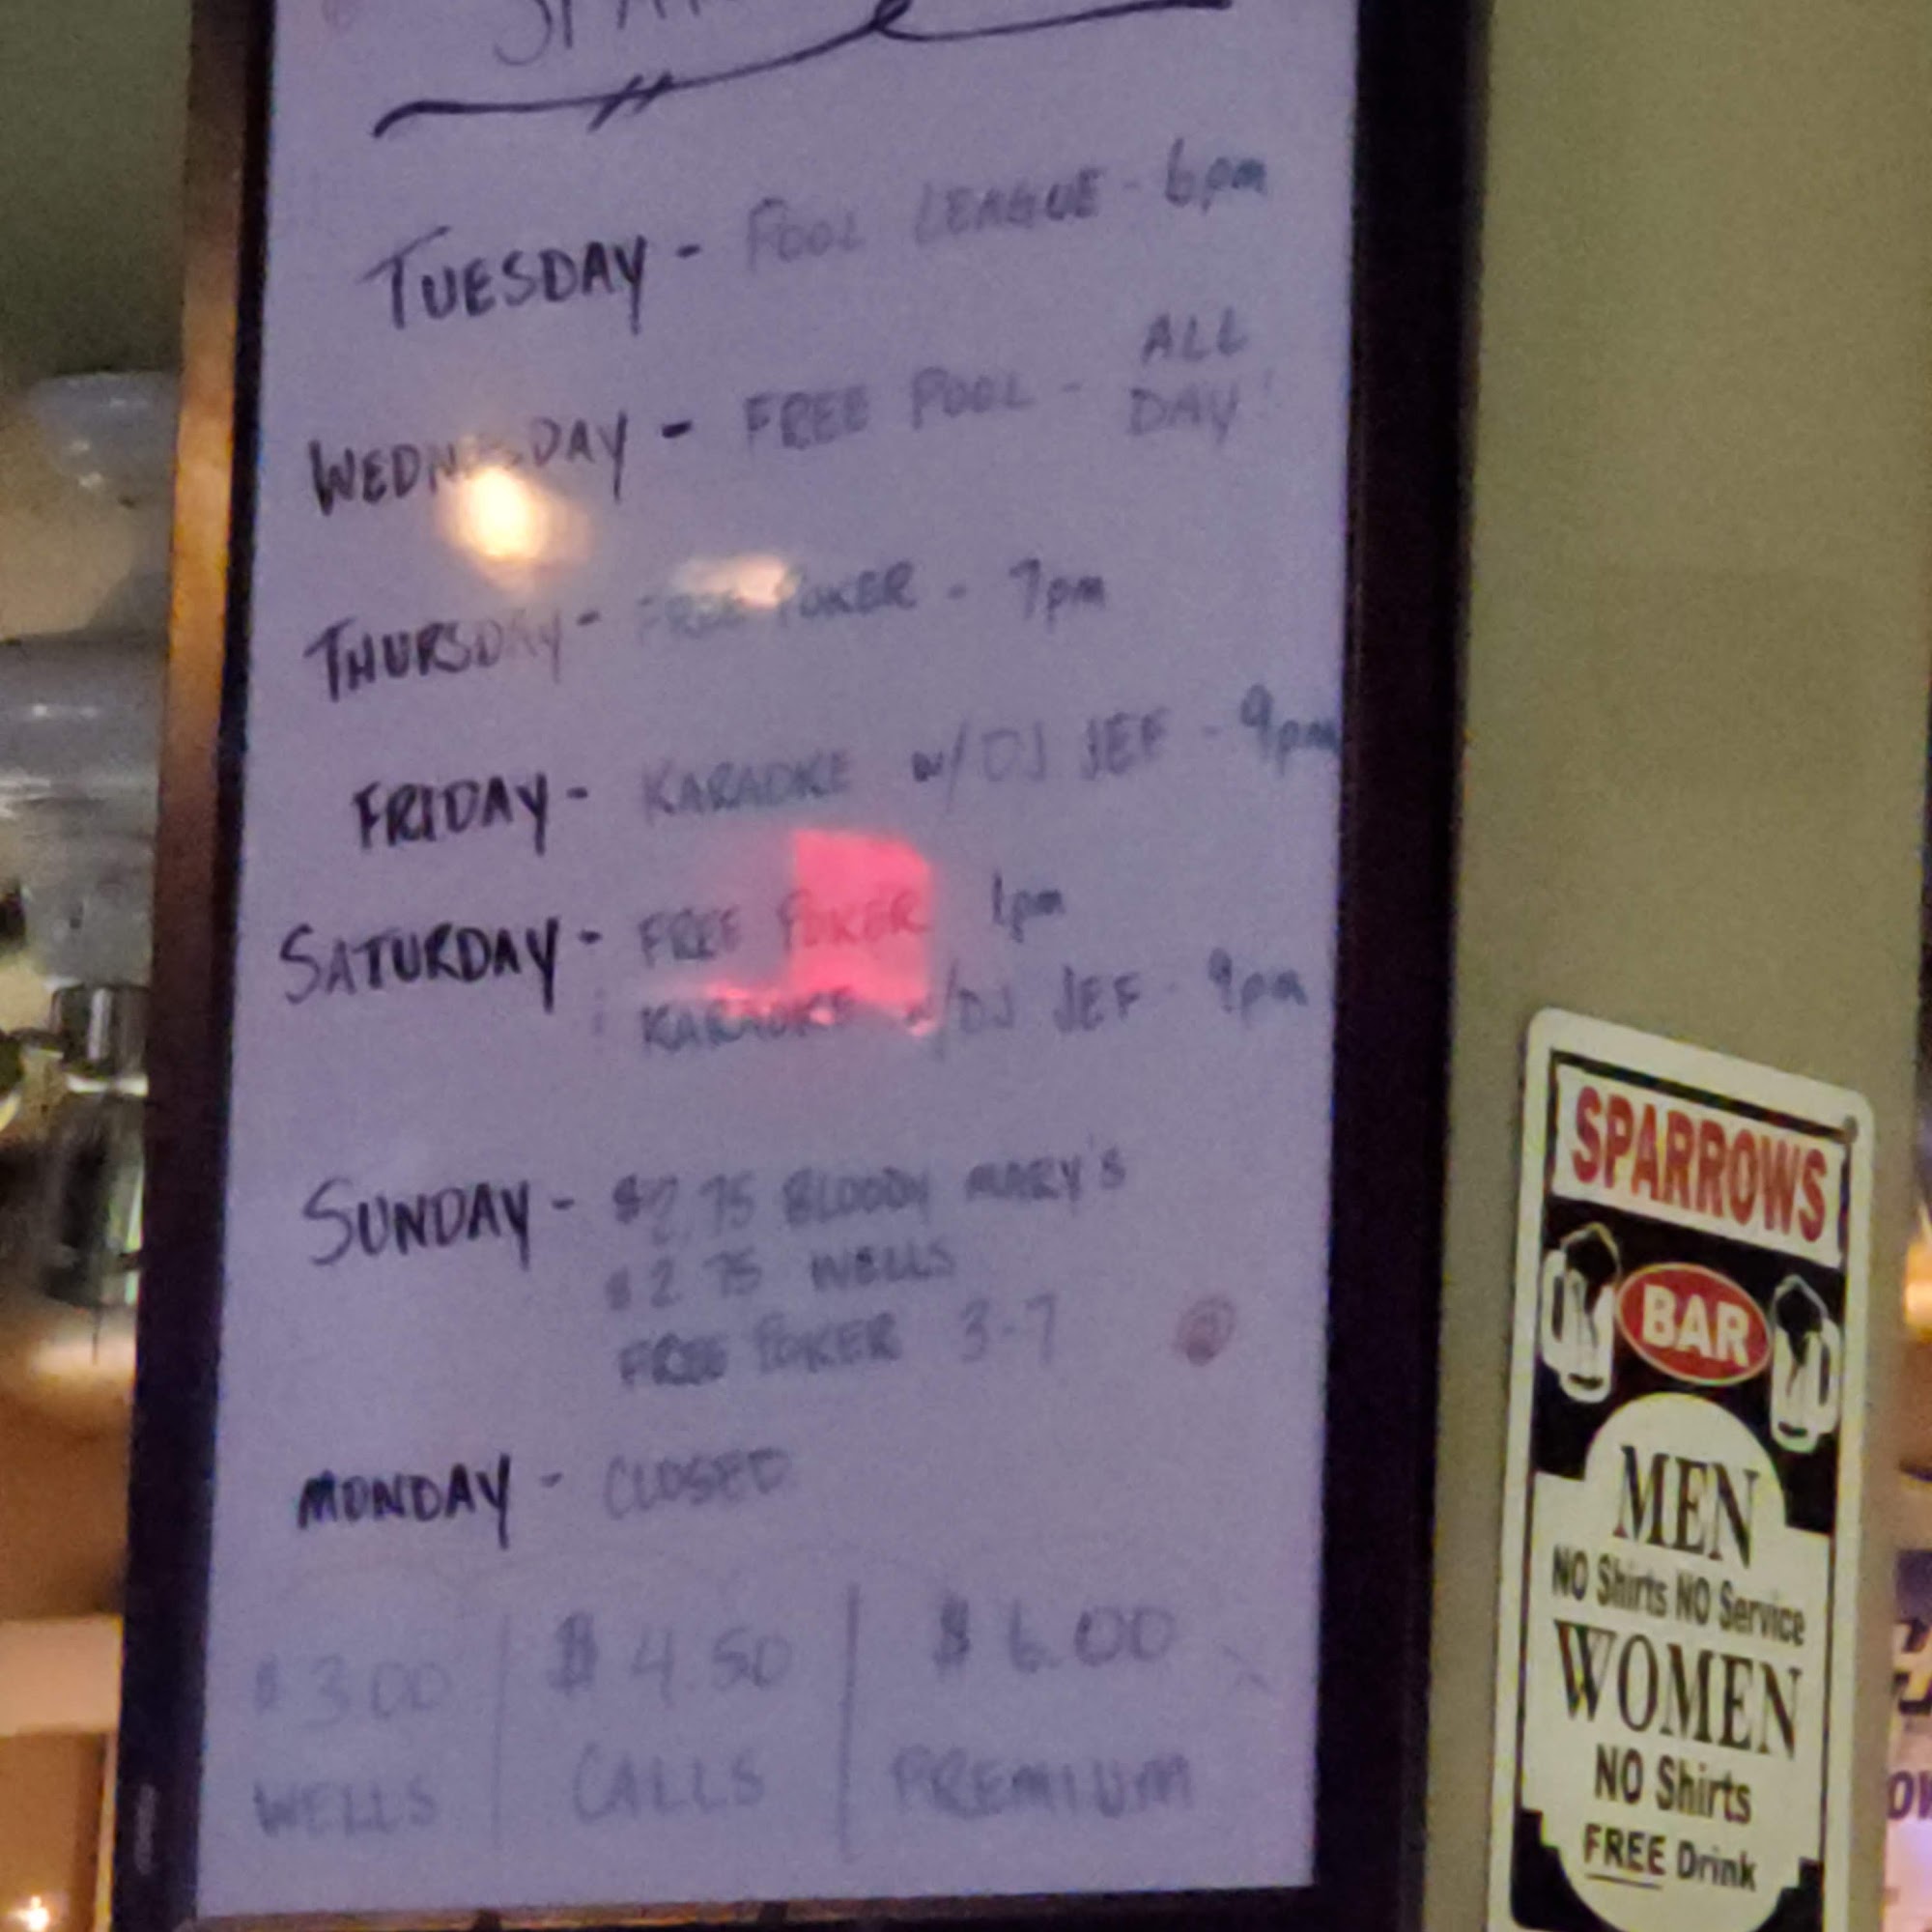 TUESDAY - POOL LEAGUE - 6pm
WEDNESDAY - FREE POOL - ALL DAY!
THURSDAY - FREE POKER - 7pm
FRIDAY - KARAOKE w/ DJ JEF - 9pm
SATURDAY - FREE POKER 1pm
KARAOKE w/ DJ JEF - 9pm
SUNDAY - $2.75 BLOODY MARY'S
$2.75 WELLS
FREE POKER 3-7
MONDAY - CLOSED
$3.00 | $4.50 | $6.00
WELLS | CALLS | PREMIUM
SPARROWS
BAR
MEN
NO Shirts NO Service
WOMEN
NO Shirts
FREE Drink